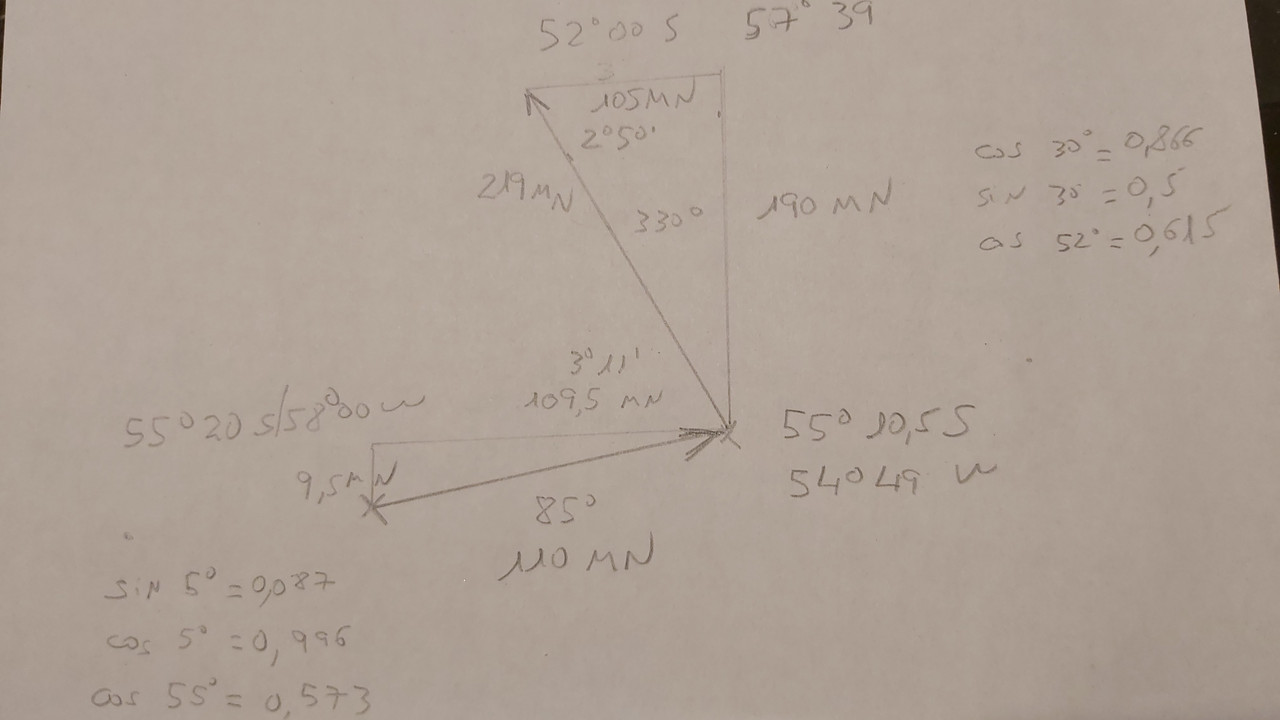 52°00 S 57° 39
105 MN
2°50'
219 MN
330°
190 MN
cos 30° = 0,866
sin 30° = 0,5
cos 52° = 0,615
3° 11'
109,5 MN
55° 20 S/58°00 W
9,5 MN
55° 10,5 S
54° 49 W
85°
110 MN
sin 5° = 0,087
cos 5° = 0,996
cos 55° = 0,573